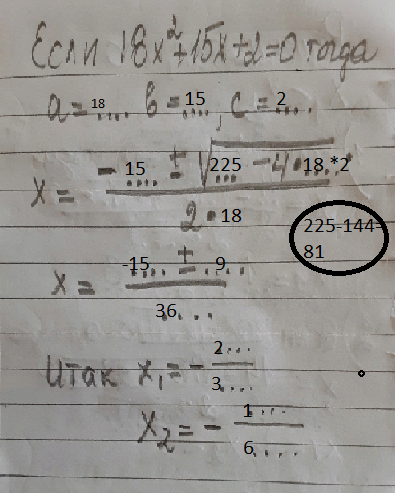 Если 18x²+15x+2=0 тогда
a=18.... b=15...., c=2....
x = -15.... ± √225... -4•18...*2
2•18
225-144=
81
x = -15... ± ..9...
36....
Итак x₁=- 2...
3....
x₂=- 1....
6....